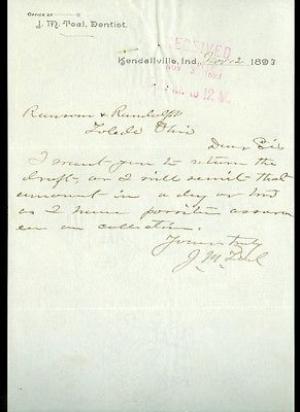 OFFICE OF
J. M. Teal, Dentist.
Kendallville, Ind., Nov 2 1893
RECEIVED
NOV 3 1893
Ransom & Randolph
Toledo Ohio
Dear Sir
I want you to return the
draft, as I will remit that
amount in a day or two
as I have positive assuran
ce on collection.
Yours truly
J. M. Teal